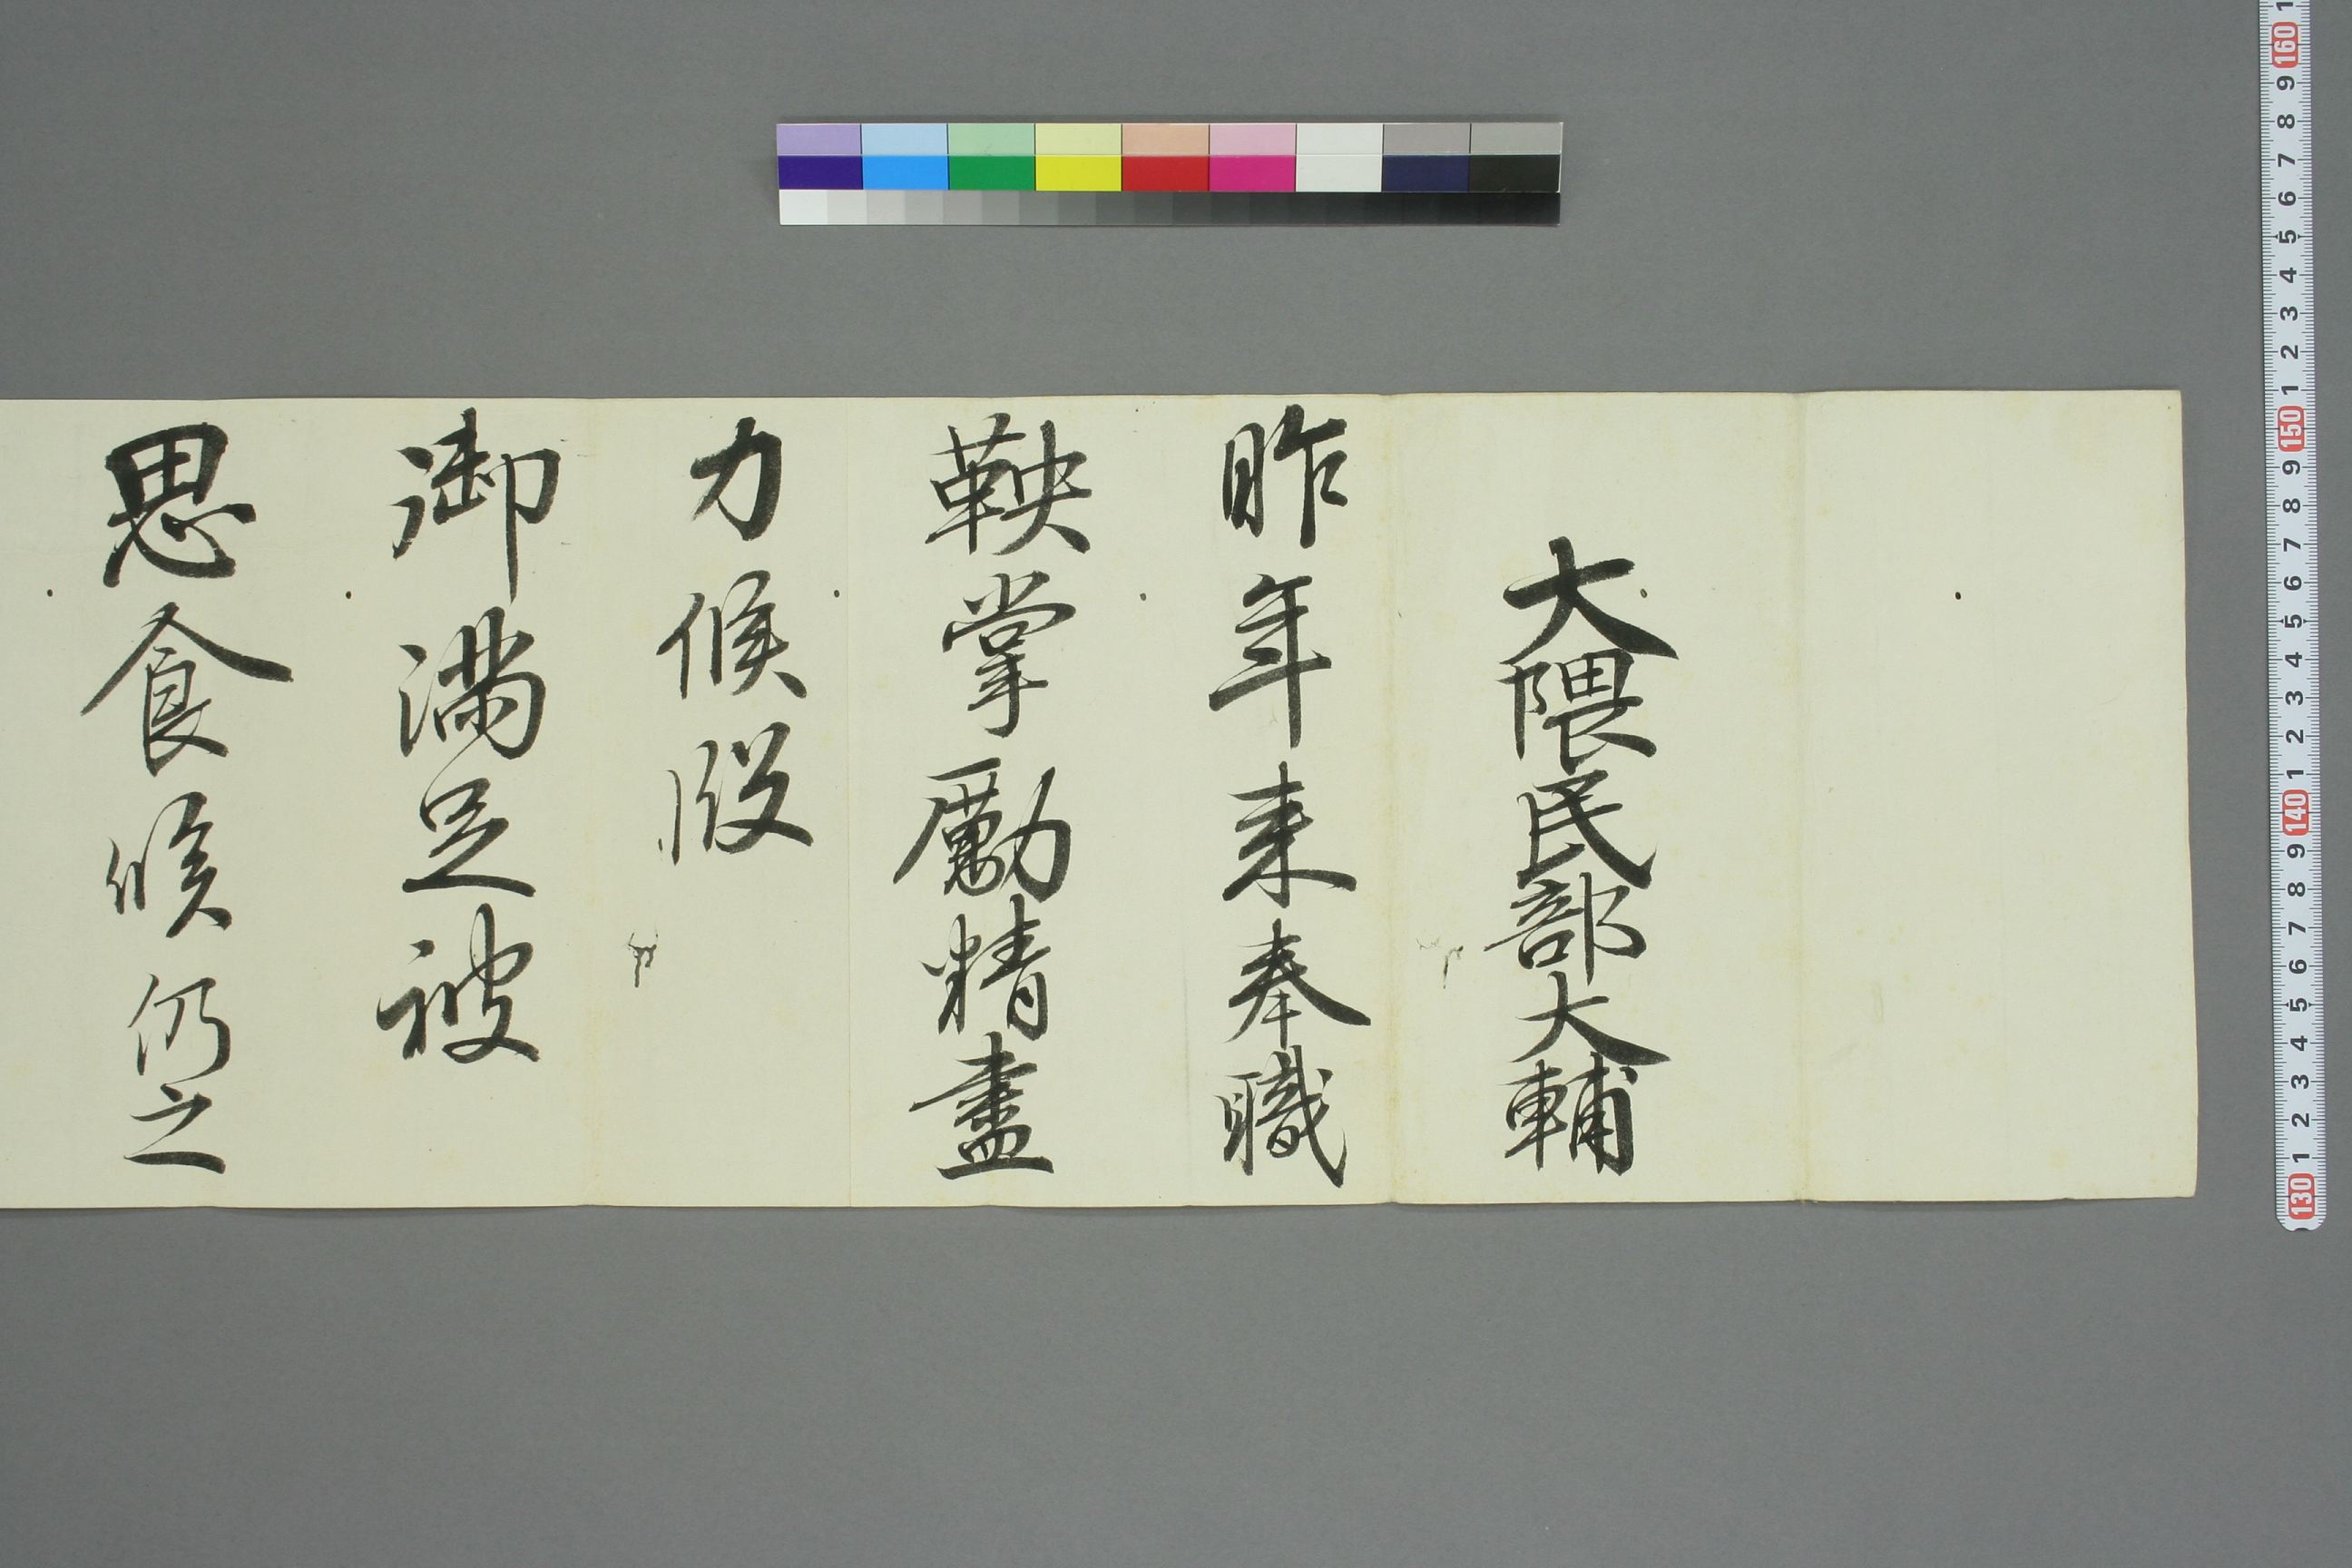 大隈民部大輔
昨年来奉職
鞅掌勵精盡
力候段
御満足被
思食候仍之
130 1 2 3 4 5 6 7 8 9 140 1 2 3 4 5 6 7 8 9 150 1 2 3 4 5 6 7 8 9 160 1